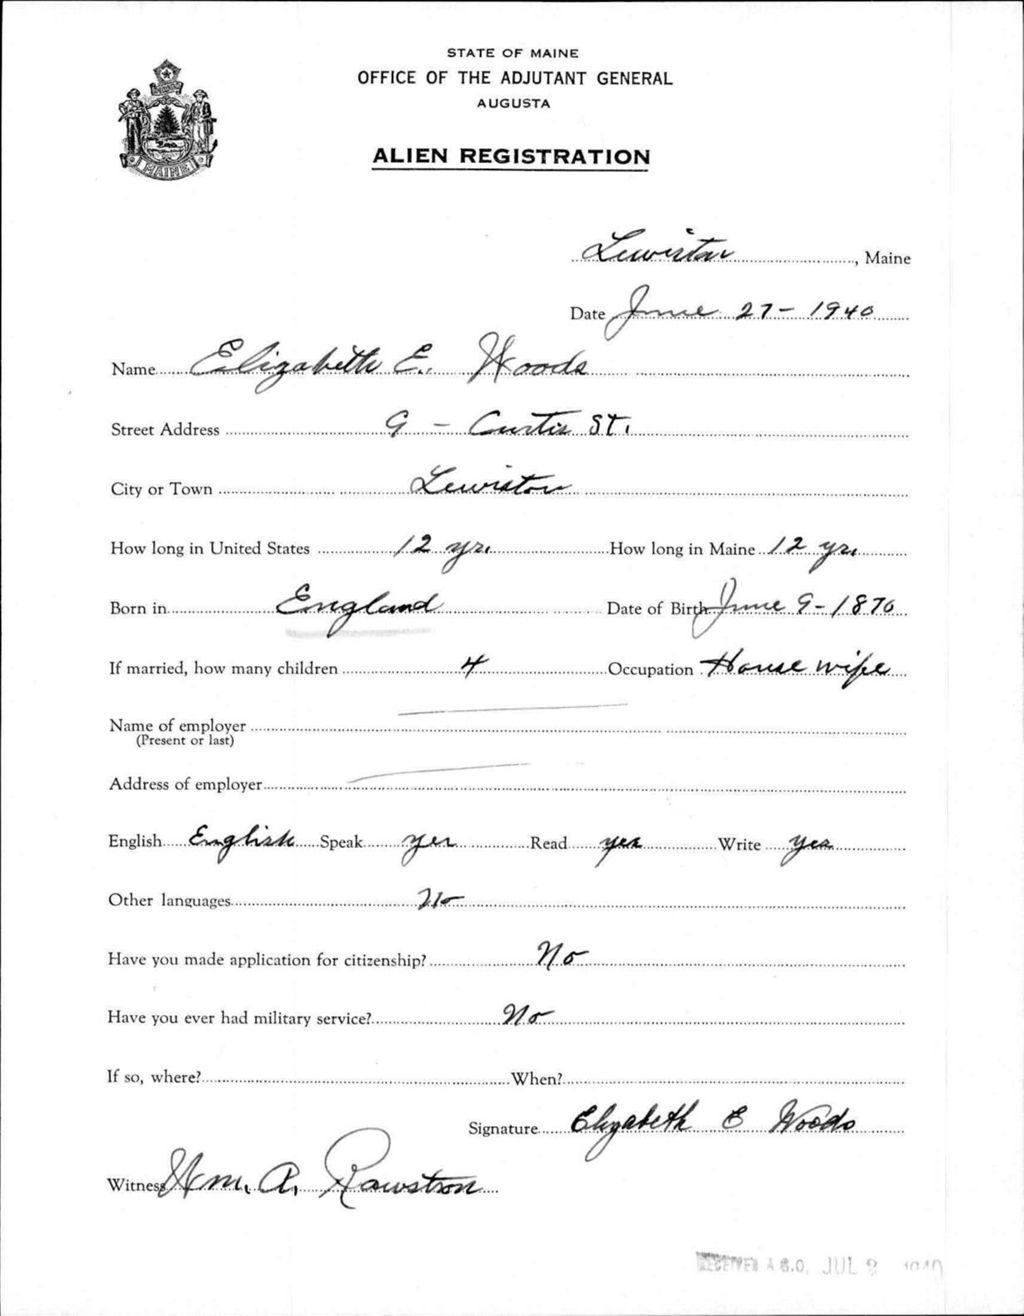 STATE OF MAINE
OFFICE OF THE ADJUTANT GENERAL
AUGUSTA
ALIEN REGISTRATION
MAINE
Lewiston, Maine
Date June 27 - 1940
Name Elizabeth E. Woods
Street Address 9 - Curtis St.
City or Town Lewiston
How long in United States 12 yr. How long in Maine 12 yr.
Born in England Date of Birth June 9 - 1876
If married, how many children 4 Occupation House wife
Name of employer
(Present or last)
Address of employer
English English Speak yes Read yes Write yes
Other languages No
Have you made application for citizenship? No
Have you ever had military service? No
If so, where? When?
Signature Elizabeth E Woods
Witness Wm. A. Rawstron
RECEIVED A.G.O. JUL 2 1940